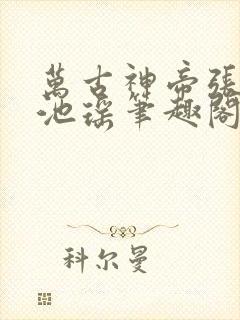 萬古神帝張
池瑤筆趣閣
科尔曼